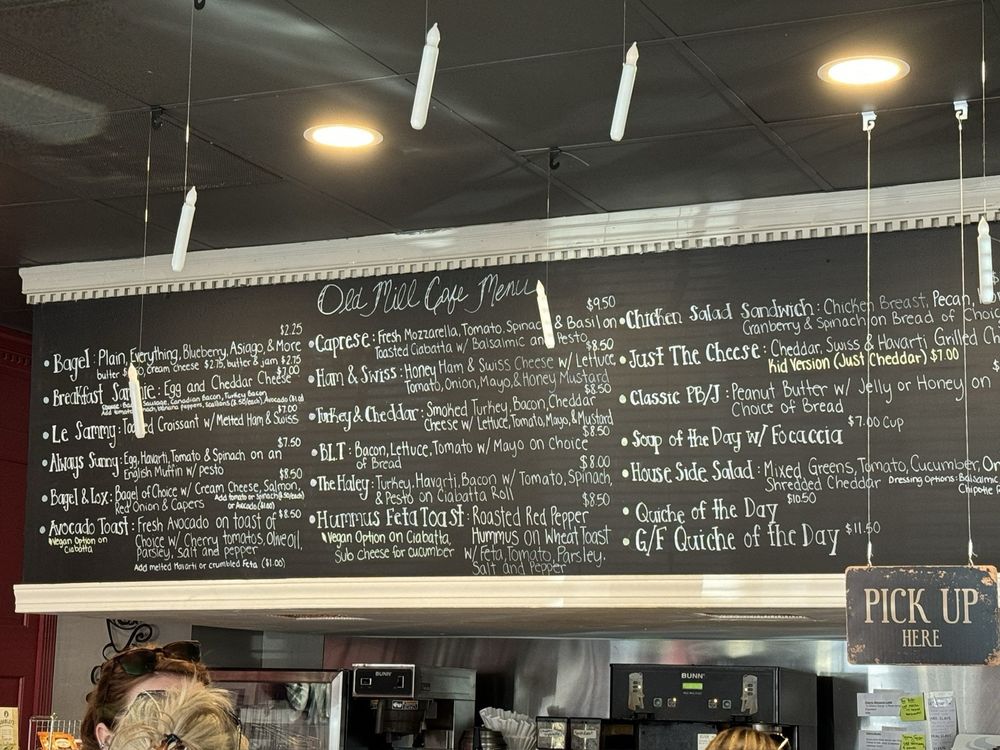 Old Mill Cafe Menu
$2.25
• Bagel: Plain, Everything, Blueberry, Asiago, & More
butter $ cream cheese $2.75, butter & jam $2.75
$7.00
Breakfast Egg and Cheddar Cheese
Sausage, Canadian Bacon, Turkey Bacon,
Add banana peppers, scallions Avocado
$7.00
• Le Sammy: Croissant w/ Melted Ham & Swiss
$7.50
• Always Sunny: Egg, Havarti, Tomato & Spinach on an
English Muffin w/ pesto
$8.50
• Bagel & Lox: Bagel of Choice w/ Cream Cheese, Salmon,
Red Onion & Capers Add tomato or spinach
or Avocado
$8.50
• Avocado Toast: Fresh Avocado on toast of
*Vegan Option on Choice w/ Cherry tomatoes, Olive oil,
Ciabatta Parsley, Salt and pepper
Add melted Havarti or crumbled Feta ($1.00)
$9.50
• Caprese: Fresh Mozzarella, Tomato, Spinach & Basil on
Toasted Ciabatta w/ Balsalmic Pesto
$8.50
• Ham & Swiss: Honey Ham & Swiss Cheese w/ Lettuce
Tomato, Onion, Mayo, & Honey Mustard
$8.50
• Turkey & Cheddar: Smoked Turkey, Bacon, Cheddar
Cheese w/ Lettuce, Tomato, Mayo, & Mustard
$8.50
• BLT: Bacon, Lettuce, Tomato w/ Mayo on choice
of Bread
$8.00
• The Haley: Turkey, Havarti, Bacon w/ Tomato, Spinach,
& Pesto on Ciabatta Roll
$8.50
• Hummus Feta Toast: Roasted Red Pepper
*Vegan Option on Ciabatta, Hummus on Wheat Toast
Sub cheese for cucumber w/ Feta, Tomato, Parsley,
Salt and Pepper
• Chicken Salad Sandwich: Chicken Breast, Pecan,
Cranberry & Spinach on Bread of Choice
• Just The Cheese: Cheddar, Swiss & Havarti Grilled
Kid Version (Just Cheddar) $7.00
• Classic PB/J: Peanut Butter w/ Jelly or Honey on
Choice of Bread
• Soup of the Day w/ Focaccia $7.00 Cup
• House Side Salad: Mixed Greens, Tomato, Cucumber,
Shredded Cheddar Dressing Options: Balsamic
Chipotle
$10.50
• Quiche of the Day
• G/F Quiche of the Day $11.50
PICK UP
HERE
BUNN
BUNN